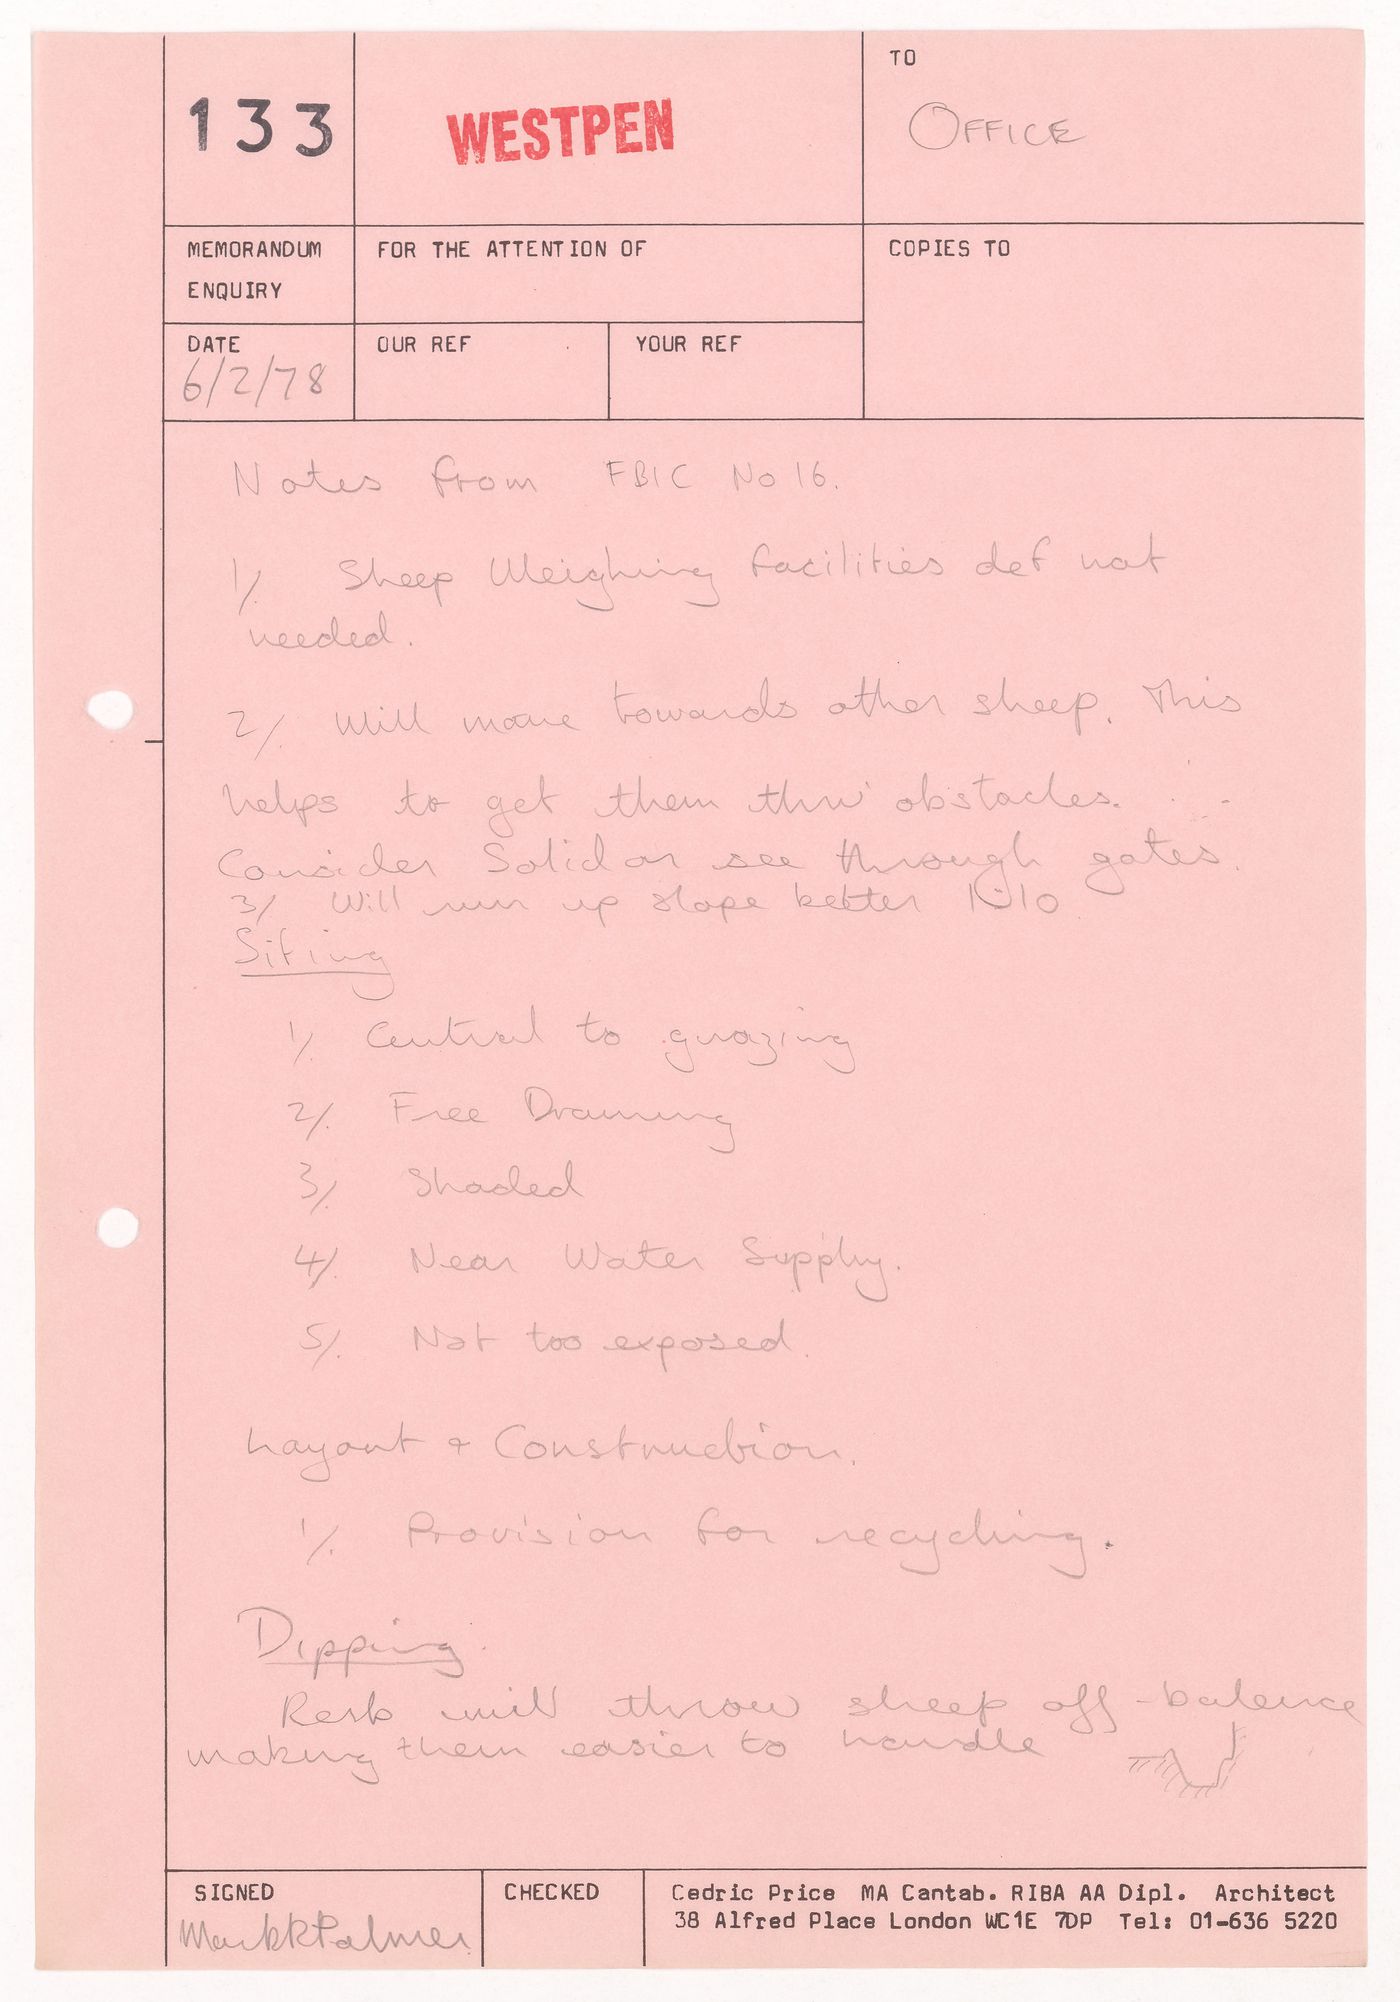 133
WESTPEN
TO
OFFICE
MEMORANDUM
ENQUIRY
FOR THE ATTENTION OF
COPIES TO
DATE
6/2/78
OUR REF
YOUR REF
Notes from FBIC No 16.
1/. Sheep Weighing facilities def not
needed.
2/. Will move towards other sheep. This
helps to get them thru' obstacles.
Consider Solid or see through gates.
3/ Will run up slope better 1:10
Siting
1/. Central to grazing
2/. Free Draining
3/. Shaded
4/. Near Water Supply.
5/. Not too exposed.
Layout + Construction.
1/. Provision for recycling.
Dipping.
will throw sheep off-balence
making them easier to handle
SIGNED
Mark R Palmer
CHECKED
Cedric Price MA Cantab. RIBA AA Dipl. Architect
38 Alfred Place London WC1E 7DP Tel: 01-636 5220